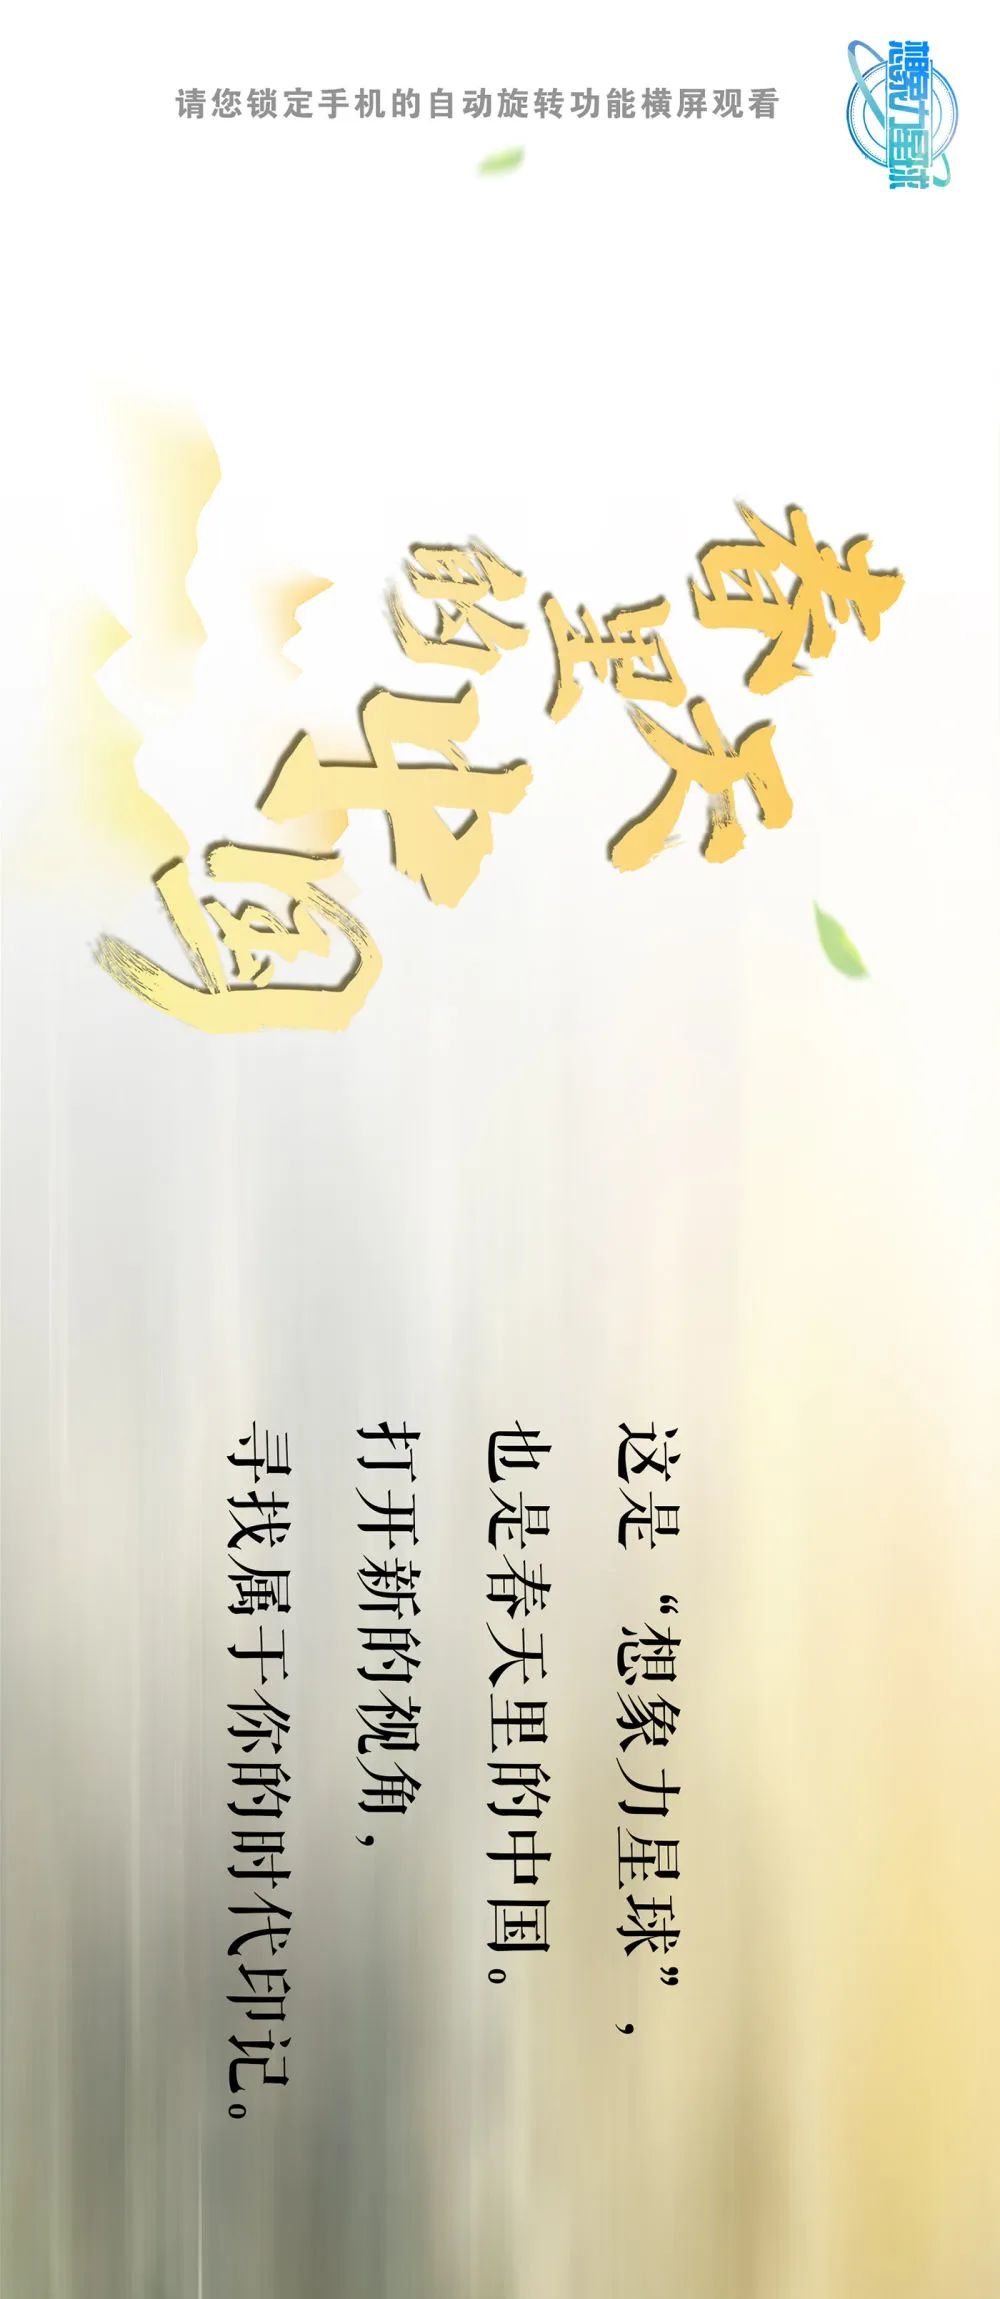 请您锁定手机的自动旋转功能横屏观看
想象力星球
春天里的中国
这是“想象力星球”，
也是春天里的中国。
打开新的视角，
寻找属于你的时代印记。